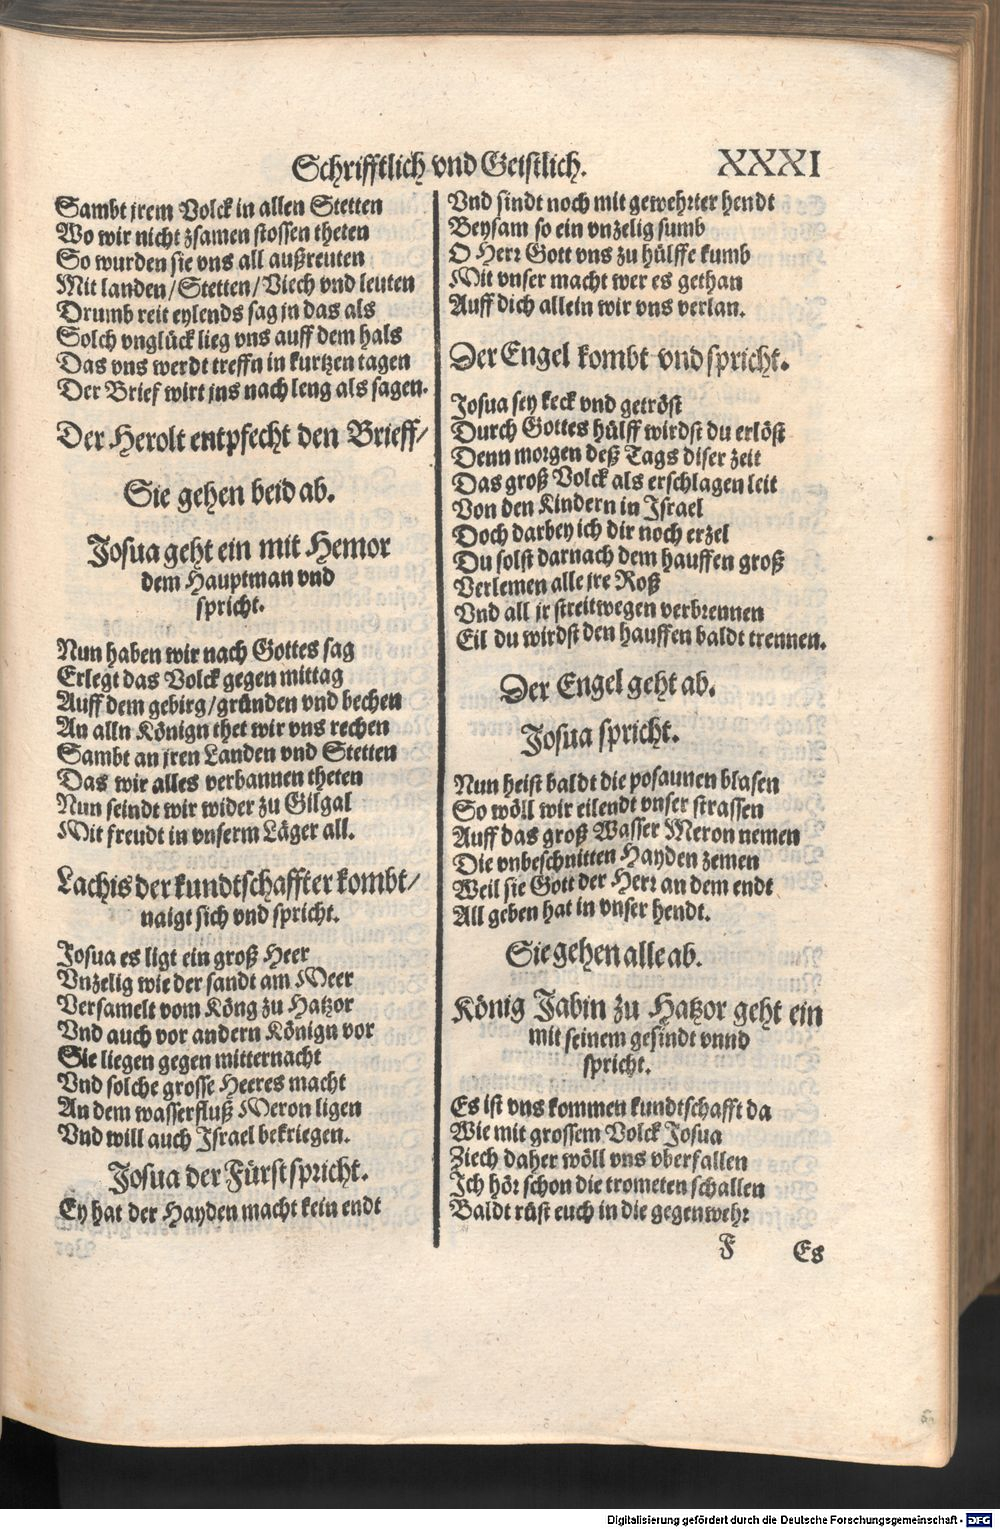 Schrifftlich vnd Geistlich. XXXI
Sambt jrem Volck in allen Stetten
Wo wir nicht zsamen stossen theten
So wurden sie vns all außreuten
Mit landen/Stetten/Viech vnd leuten
Drumb reit eylends sag jn das als
Solch vnglück lieg vns auff dem hals
Das vns werdt treffn in kurtzen tagen
Der Brief wirt jns nach leng als sagen.
Der Herolt entpfecht den Brieff/
Sie gehen beid ab.
Josua geht ein mit Hemor
dem Hauptman vnd
spricht.
Nun haben wir nach Gottes sag
Erlegt das Volck gegen mittag
Auff dem gebirg/gründen vnd bechen
An alln Könign thet wir vns rechen
Sambt an jren Landen vnd Stetten
Das wir alles verbannen theten
Nun seindt wir wider zu Gilgal
Mit freudt in vnserm Läger all.
Lachis der kundtschaffter kombt/
naigt sich vnd spricht.
Josua es ligt ein groß Heer
Vnzelig wie der sandt am Meer
Versamelt vom Köng zu Hatzor
Vnd auch vor andern Könign vor
Sie liegen gegen mitternacht
Vnd solche grosse Heeres macht
An dem wasserfluß Meron ligen
Vnd will auch Israel bekriegen.
Josua der Fürst spricht.
Ey hat der Hayden macht kein endt
Vnd sindt noch mit gewehrter hendt
Beysam so ein vnzelig sumb
O Herr Gott vns zu hülffe kumb
Mit vnser macht wer es gethan
Auff dich allein wir vns verlan.
Der Engel kombt vnd spricht.
Josua sey keck vnd getröst
Durch Gottes hülff wirdst du erlöst
Denn morgen deß Tags diser zeit
Das groß Volck als erschlagen leit
Von den Kindern in Israel
Doch darbey ich dir noch erzel
Du solst darnach dem hauffen groß
Verlemen alle jre Roß
Vnd all jr streitwegen verbrennen
Eil du wirdst den hauffen baldt trennen.
Der Engel geht ab.
Josua spricht.
Nun heist baldt die posaunen blasen
So wöll wir eilendt vnser strassen
Auff das groß Wasser Meron nemen
Die vnbeschnitten Hayden zemen
Weil sie Gott der Herr an dem endt
All geben hat in vnser hendt.
Sie gehen alle ab.
König Jabin zu Hatzor geht ein
mit seinem gesindt vnnd
spricht.
Es ist vns kommen kundtschafft da
Wie mit grossem Volck Josua
Ziech daher wöll vns vberfallen
Ich hör schon die trometen schallen
Baldt rüst euch in die gegenwehr
F Es
Digitalisierung gefördert durch die Deutsche Forschungsgemeinschaft - DFG